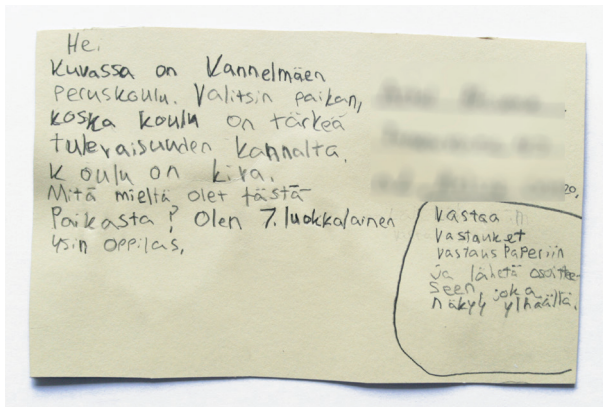 Hei
Kuvassa on Kannelmäen
peruskoulu. Valitsin paikan,
koska koulu on tärkeä
tulevaisuuden kannalta.
Koulu on kiva.
Mitä mieltä olet tästä
Paikasta? Olen 7. luokkalainen
ysin oppilas.
Vastaa
Vastauket
vastaus Paperiin
ja lähetä osoittee-
seen, joka
näkyy ylhäältä.